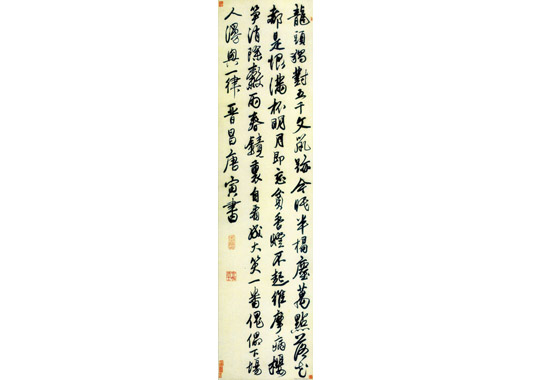 龍頭獨對五千文鼠跡今眠半榻塵萬點落花
都是恨滿杯明月即忘貧香燈不起維摩病櫻
笋消除穀雨春鏡裏自看成大笑一番傀儡下場
人漫興一律晋昌唐寅書